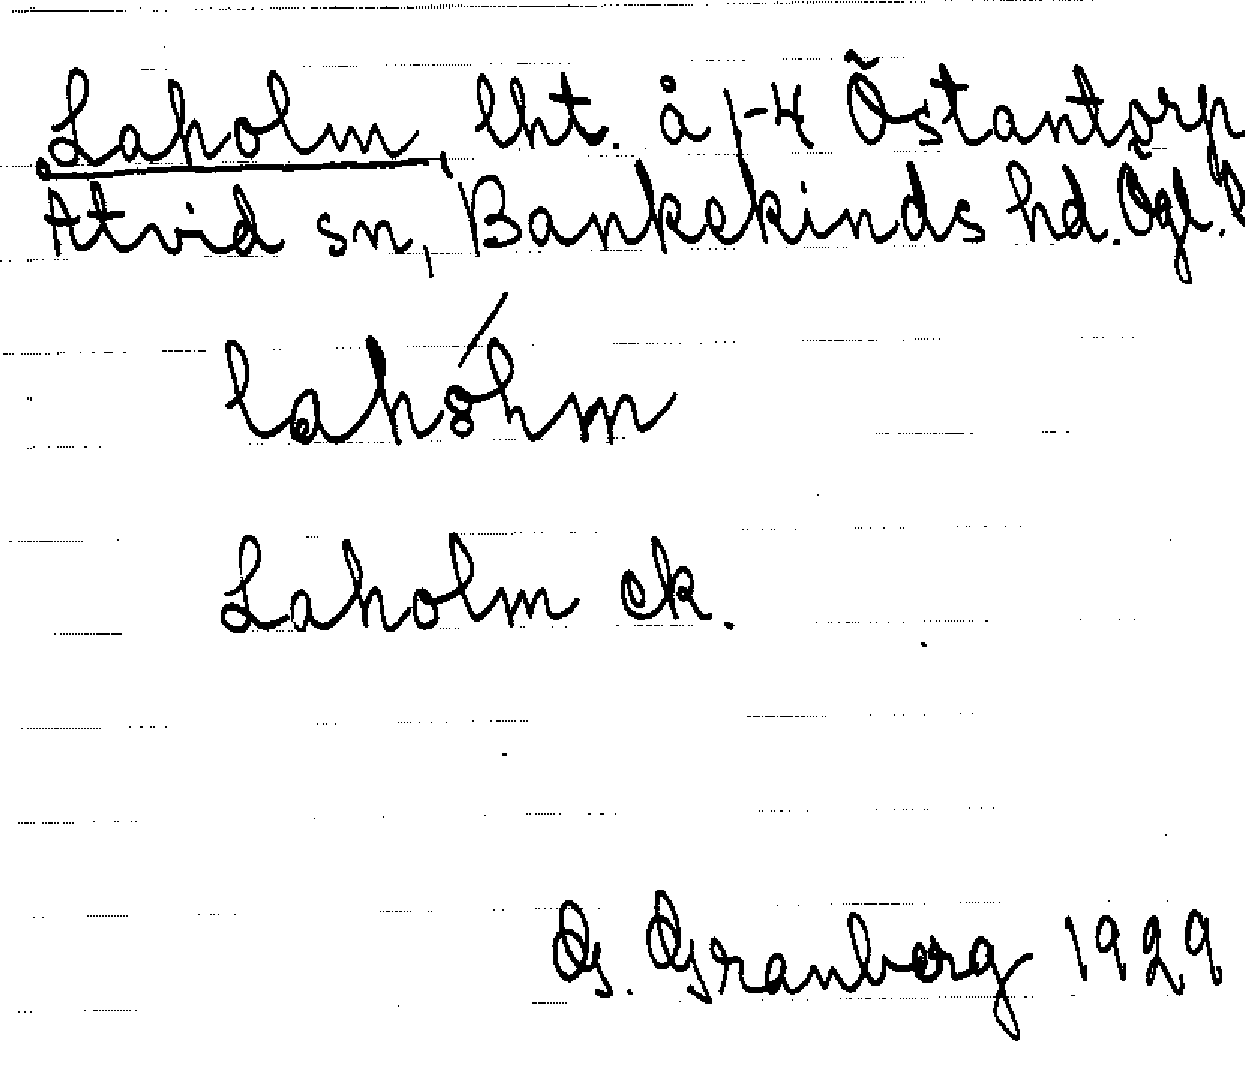 Laholm, lht. å 1-4 Östantorp
Åtvid sn, Bankekinds hd. Ögl.
Laholm ek.
G. Granberg 1929